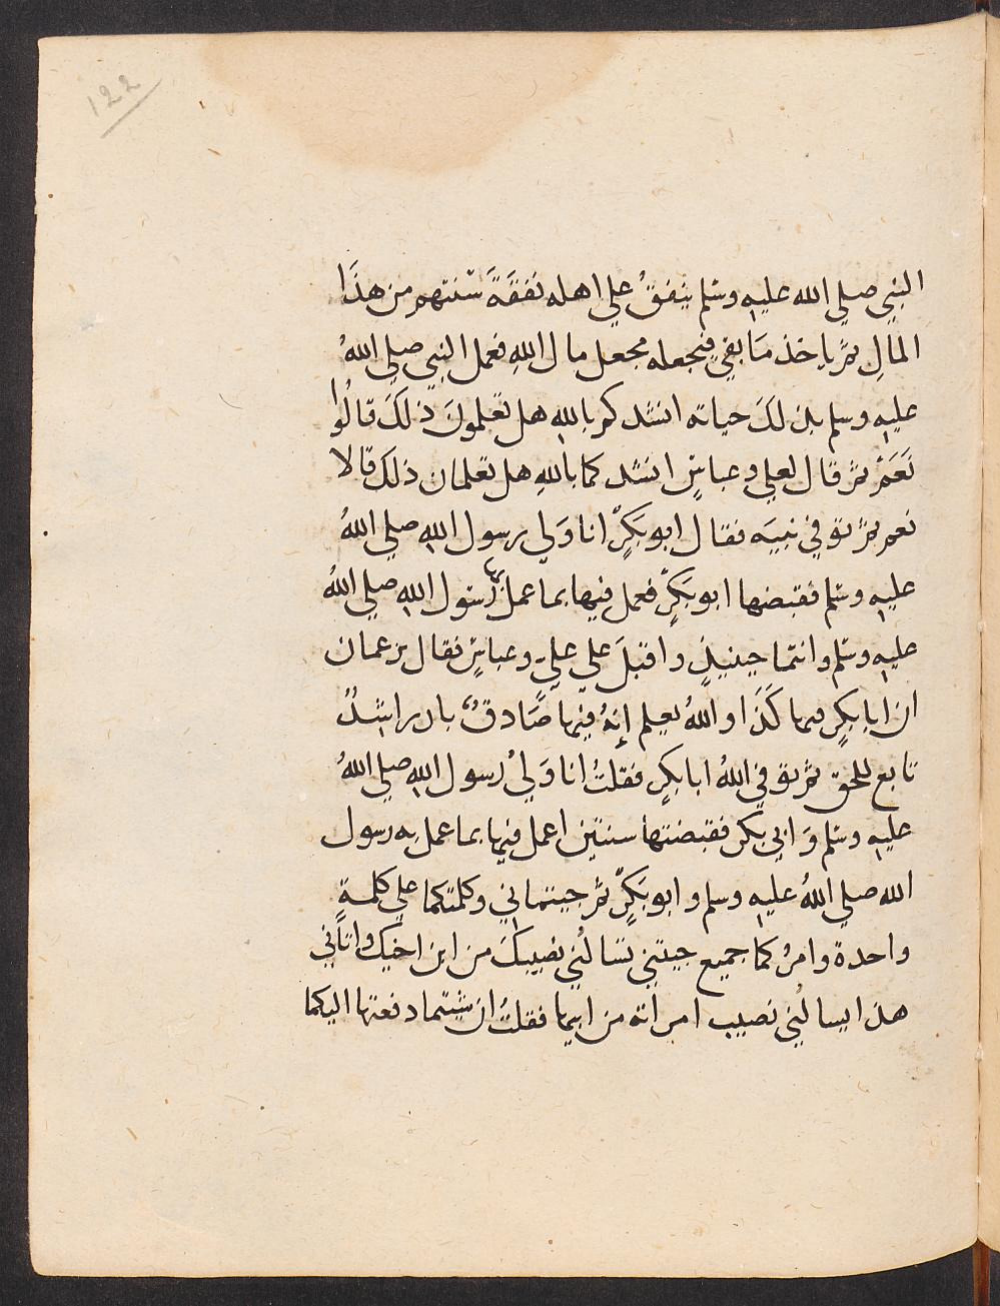 ١٢٢
النبي صلي الله عليه وسلم ينفقُ علي اهله نفقَةَ سَنتهم من هذَا
المالِ ثم ياخذ مَا بقي فيجعله مجعل مال اللهِ فعمل النبي صلي اللهُ
عليهِ وسلم بذلكَ حياته انشدكم باللهِ هل تعلمونَ ذلكَ قالُوا
نَعَمْ ثم قال لعلي وعباسٍ انشدكما باللهِ هل تعلمان ذلك قالا
نعم ثم توفي نبيَه فقال ابو بَكرٍ انا وَلي رسول اللهِ صلي اللهُ
عليهِ وسلم فقبضها ابو بَكرٍ فعمل فيها بما عمل بها رسول اللهِ صلي اللهُ
عليهِ وسلم وانتما حينيذٍ واقبلَ علي عليٍ وعباسٍ فقال تزعمان
ان ابا بكرٍ فيها كَذَا واللهُ يعلم إنهُ فيها صَادقٌ بار راشدٌ
تابع للحق ثم توفي اللهُ ابا بكرٍ فقلتُ انا وَليُ رسول اللهِ صلي اللهُ
عليهِ وسلم وَابي بكر فقبضتها سنتين اعمل فيها بما عمل به رسول
الله صلي اللهُ عليهِ وسلم وابو بَكرٍ ثم جيتماني وكلمتكما علي كلمةٍ
واحدة وامرُكما جميع جيتني تسالُني نصيبكَ من ابن اخيك واتاني
هذا يسالُني نصيب امراته من ابيها فقلتُ ان شيتما دفعتها اليكما